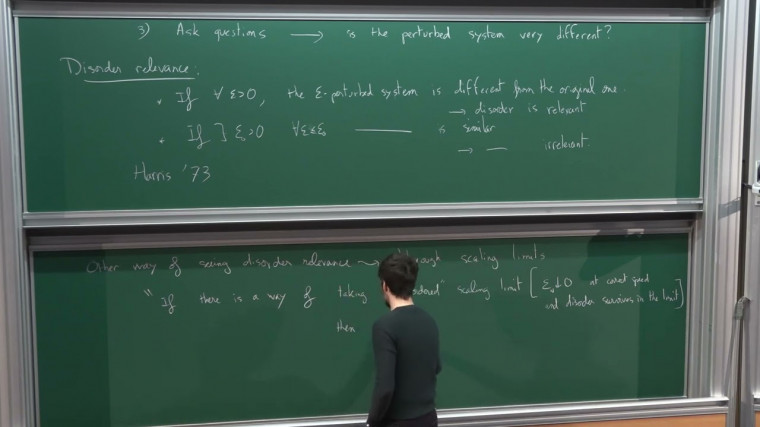 3) Ask questions ⟶ is the perturbed system very different?
Disorder relevance:
• If ∀ ε>0, the ε-perturbed system is different from the original one.
→ disorder is relevant
• If ∃ ε₀>0 ∀ε≤ε₀ —— is similar
→ — irrelevant.
Harris '73
Other way of seeing disorder relevance → through scaling limits
"If there is a way of taking ordered" scaling limit [εₙ↓0 at correct speed
and disorder survives in the limit]
then